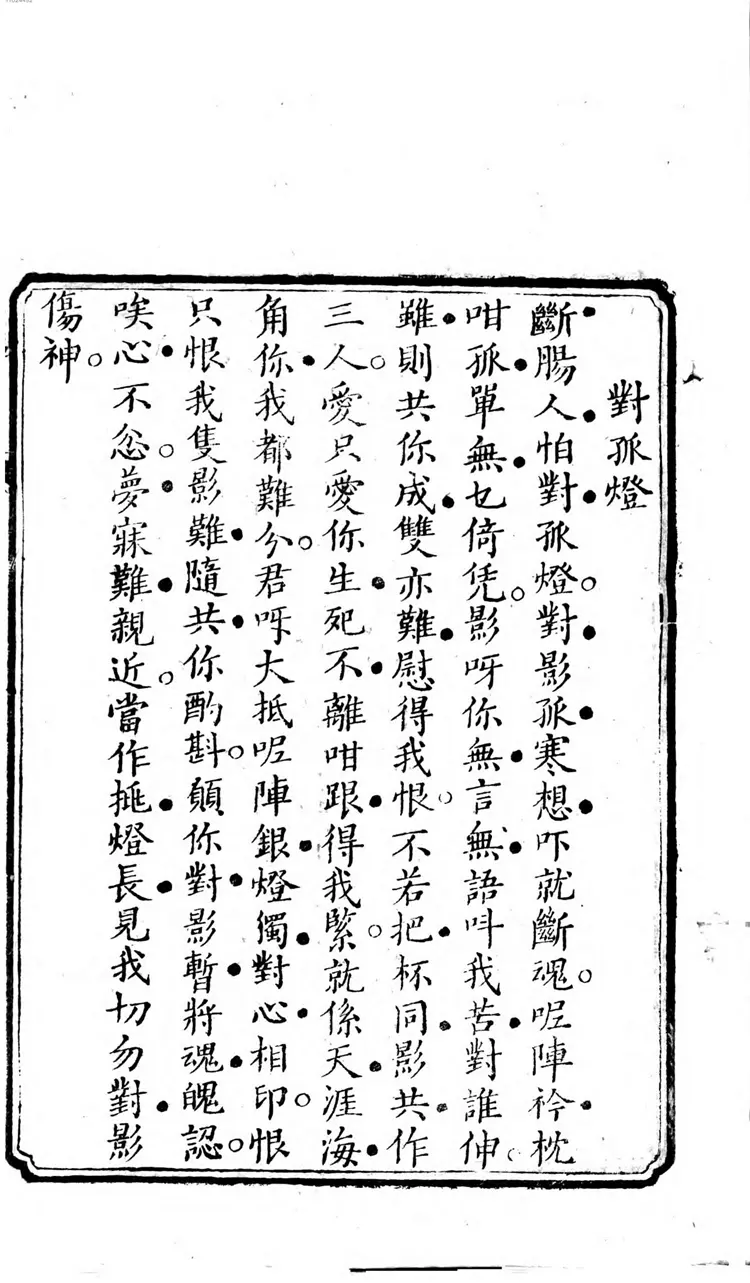 對孤燈
斷腸人怕對孤燈。對影孤寒想吓就斷魂。呢陣衿枕
咁孤單無乜倚凭。影呀你無言無語叫我苦對誰伸。
雖則共你成雙亦難慰得我恨。不若把杯同影共作
三人。愛只愛你生死不離咁跟得我緊。就係天涯海
角你我都難分。君呀大抵呢陣銀燈獨對心相印。恨
只恨我隻影難隨共你酌斟。願你對影暫將魂魄認。
唉心不忿。夢寐難親近。當作挑燈長見我切勿對影
傷神。